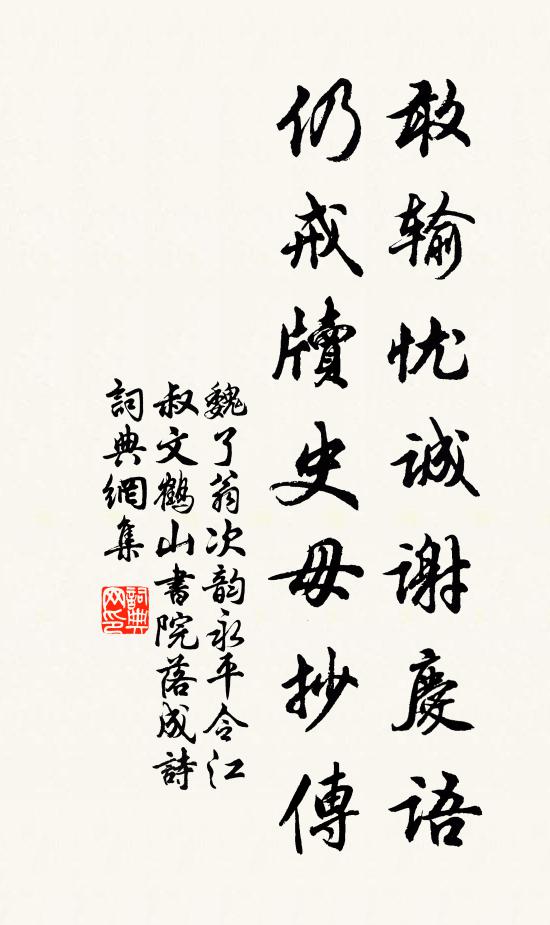 敢输忧诚谢慶语
仍戒牍史毋抄傳
魏了翁次韵永平令江
叔文鹤山書院落成詩
詞典網集
詞典网印